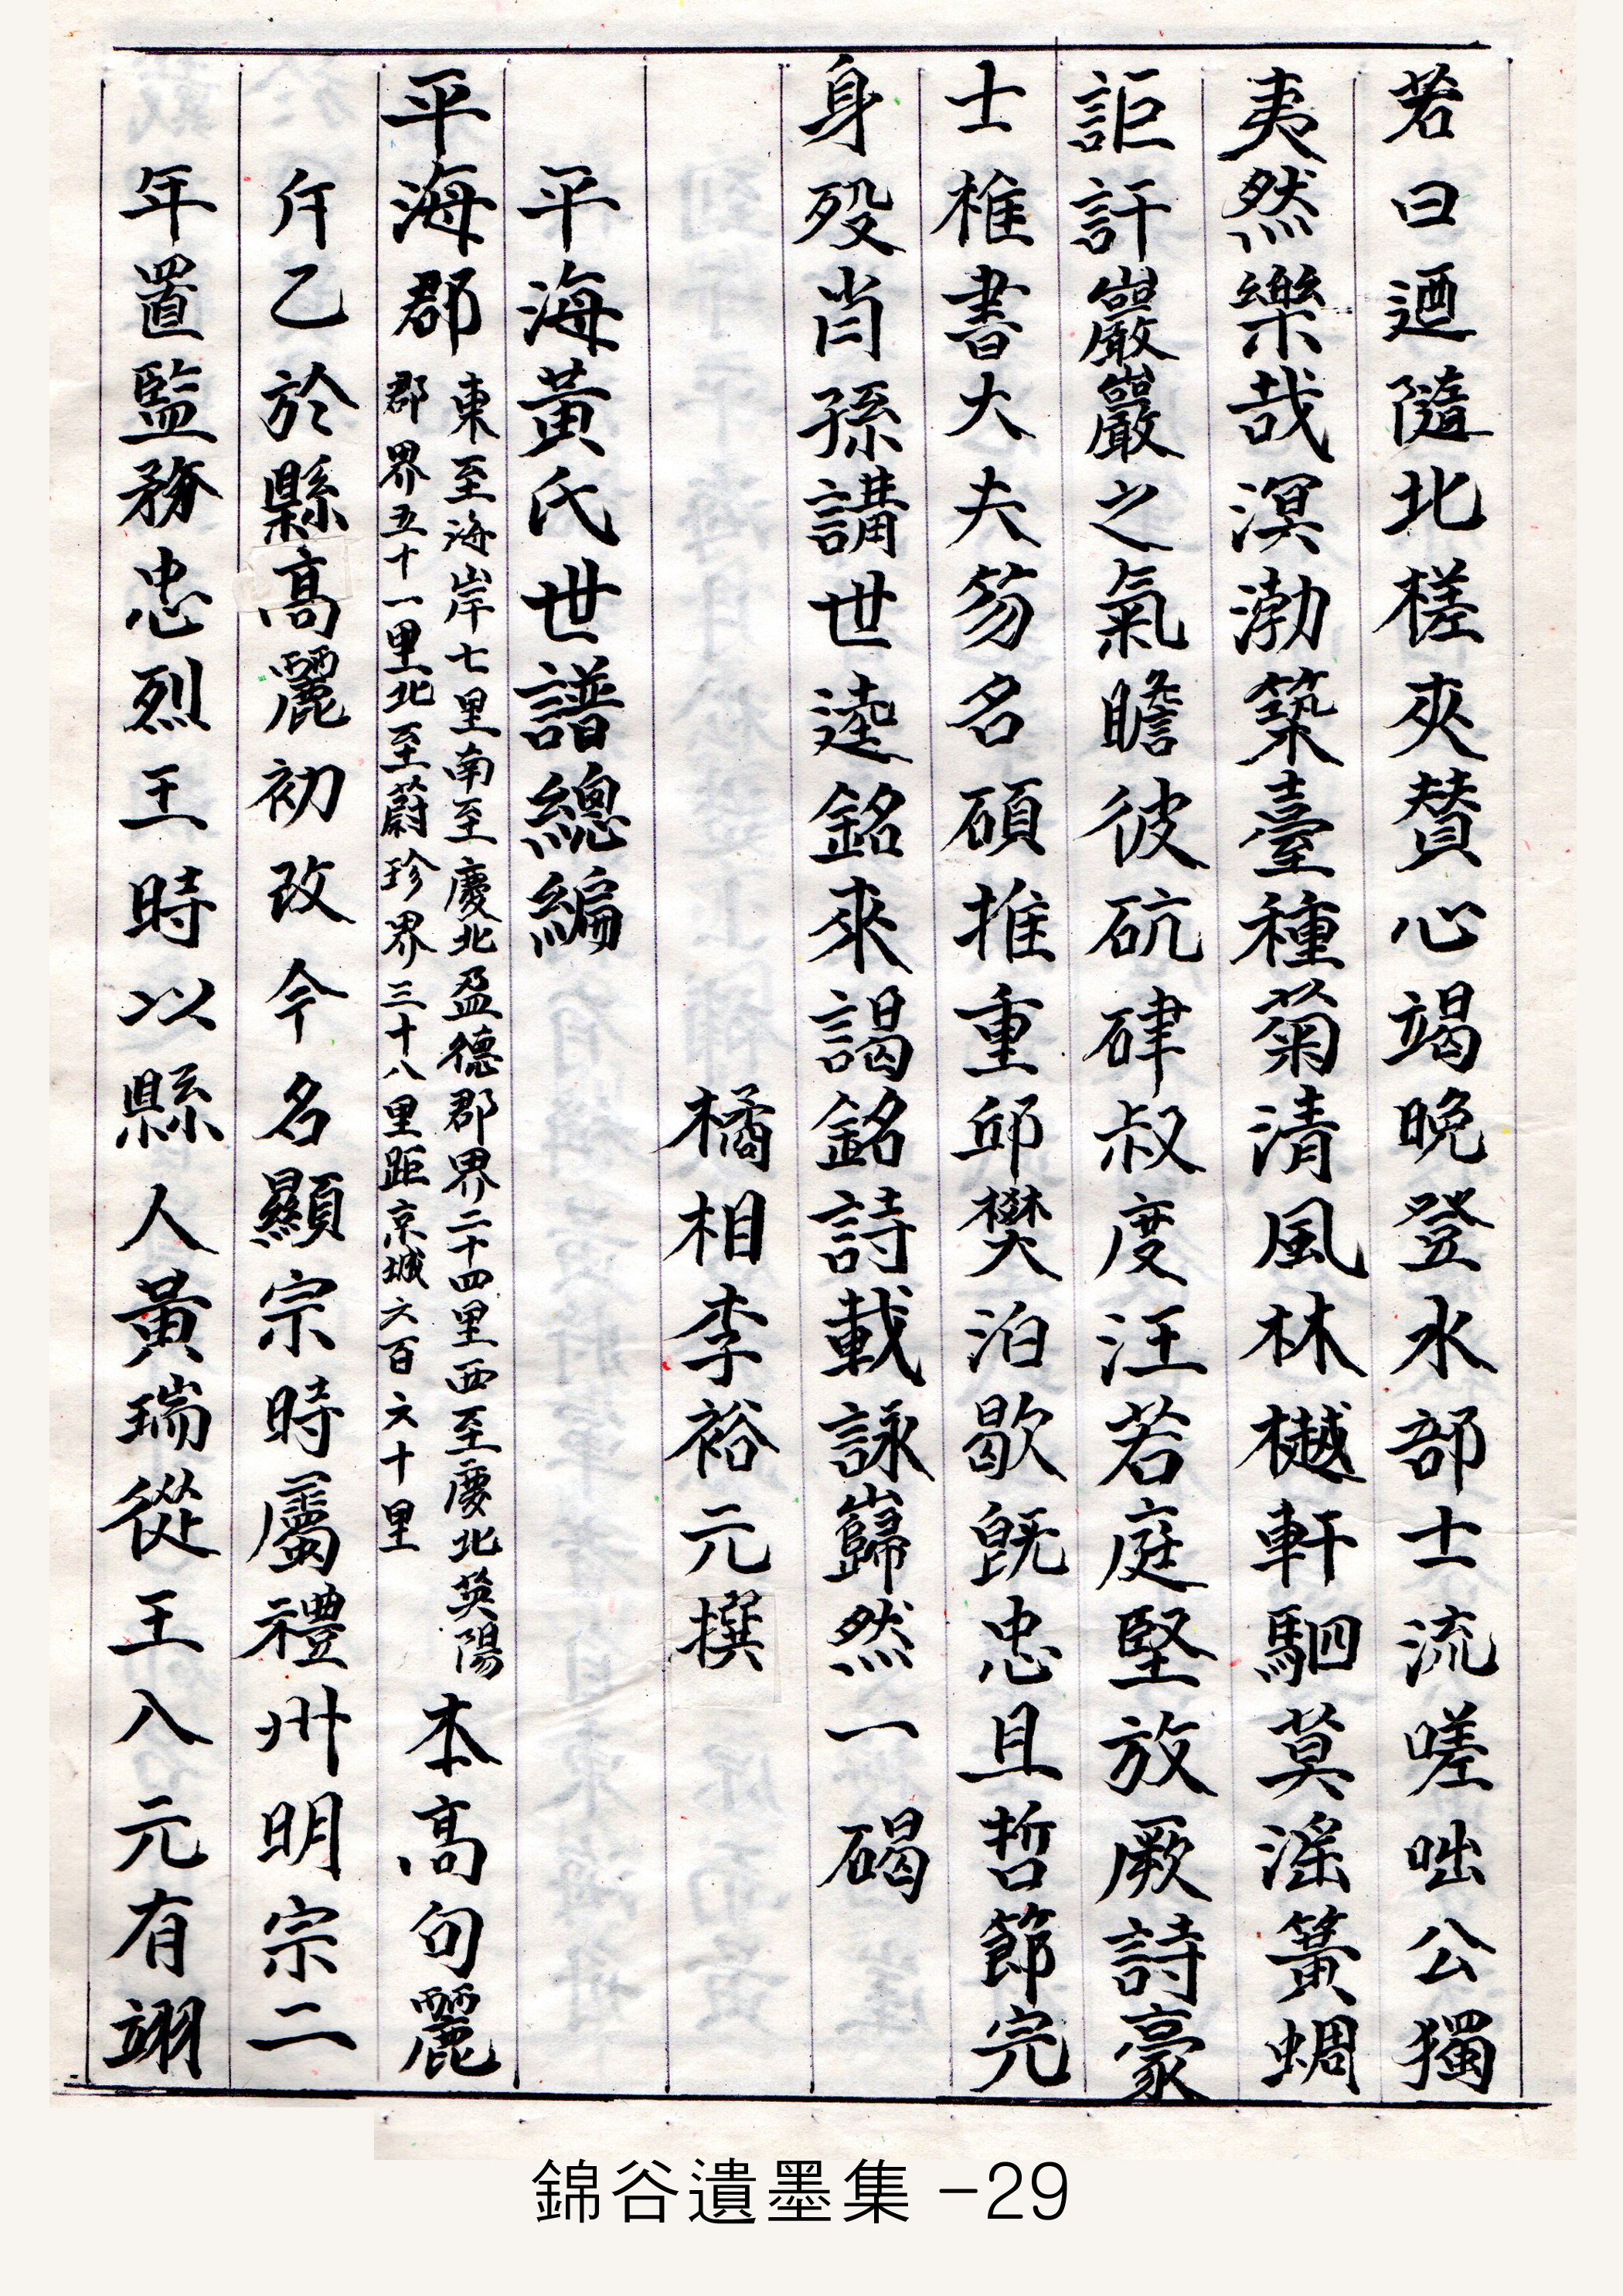 若曰迺隨北槎夾賛心竭晩登水部士流嗟咄公獨
夷然樂哉溟渤築臺種菊清風林樾軒駟莫滛簧蜩
詎訐巖巖之氣瞻彼砊硉叔度汪若庭堅放厥詩豪
士椎書大夫笏名碩推重邱樊泊歇旣忠且哲節完
身歿肖孫講世逵銘來謁銘詩載詠巋然一碣
橘相李裕元撰
平海黃氏世譜總編
平海郡
東至海岸七里南至慶北盈德郡界二十四里西至慶北英陽
郡界五十一里北至蔚珍界三十八里距京城六百六十里
本高句麗
斤乙於縣高麗初改今名顯宗時屬禮州明宗二
年置監務忠烈王時以縣人黃瑞從王入元有翊
錦谷遺墨集 -29